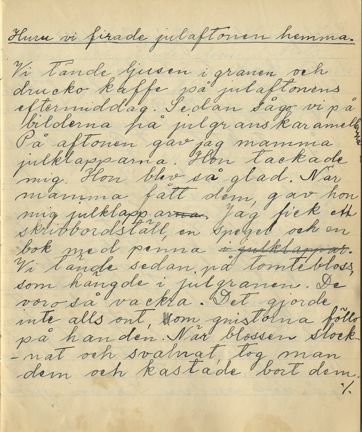 Huru vi firade julaftonen hemma.
Vi tände ljusen i granen och
drucko kaffe på julaftonens
eftermiddag. Sedan sågo vi på
bilderna på julgranskaramellerna
På aftonen gav jag mamma
julklapparna. Hon tackade
mig. Hon blev så glad. När
mamma fått dem, gav hon
mig julklapparna. Jag fick ett
skrivbordställ, en spegel och en
bok med penna i julklappar.
Vi tände sedan på tomtebloss
som hängde i julgranen. De
voro så vackra. Det gjorde
inte alls ont, om gnistorna föllo
på handen. När blossen slock-
-nat och svalnat, tog man
dem och kastade bort dem.
%.